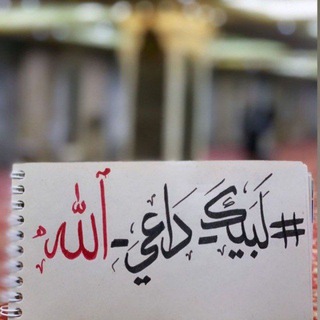 #لَبَيكَ-دَاعيَ-ألله